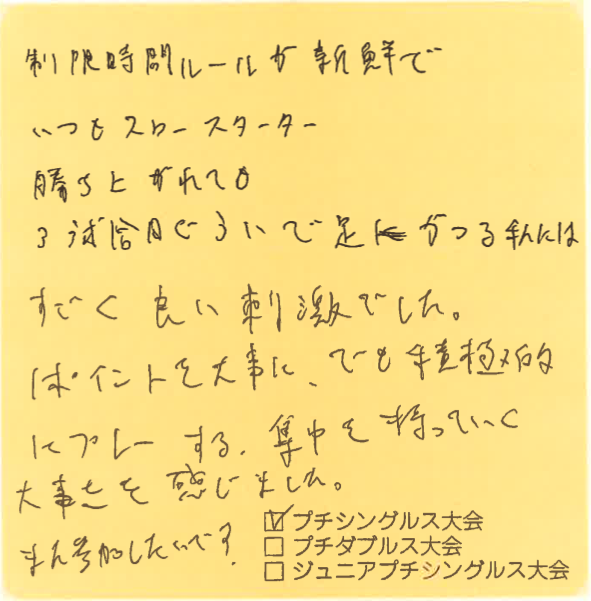 制限時間ルールが新鮮で
いつもスロースターター
勝ち上がれても
3試合目ぐらいで足がつる私には
すごく良い刺激でした。
1ポイントを大事に、でも積極的
にプレーする、集中を持っていく
大事さを感じました。
また参加したいです!
☑プチシングルス大会
□プチダブルス大会
□ジュニアプチシングルス大会